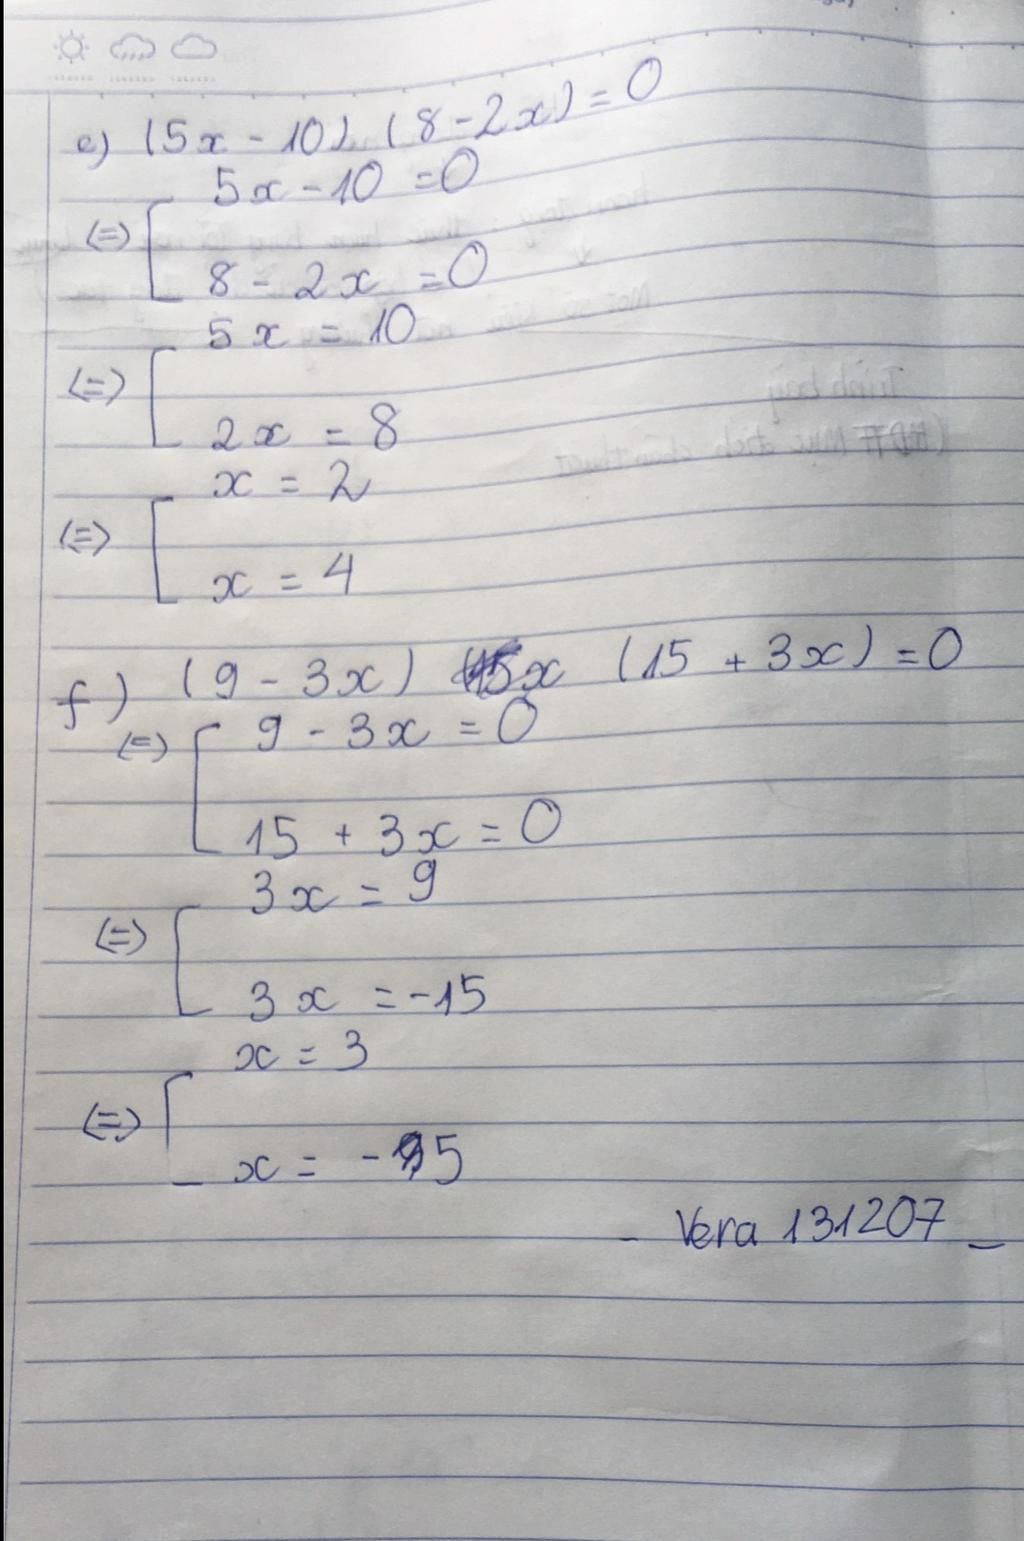 e) (5x - 10). (8 - 2x) = 0
5x - 10 = 0
(=)
8 - 2x = 0
5x = 10
(=)
2x = 8
x = 2
(=)
x = 4
f) (9 - 3x) (15 + 3x) = 0
(=) 9 - 3x = 0
15 + 3x = 0
3x = 9
(=)
3x = -15
x = 3
(=)
x = -5
- Vera 131207 -